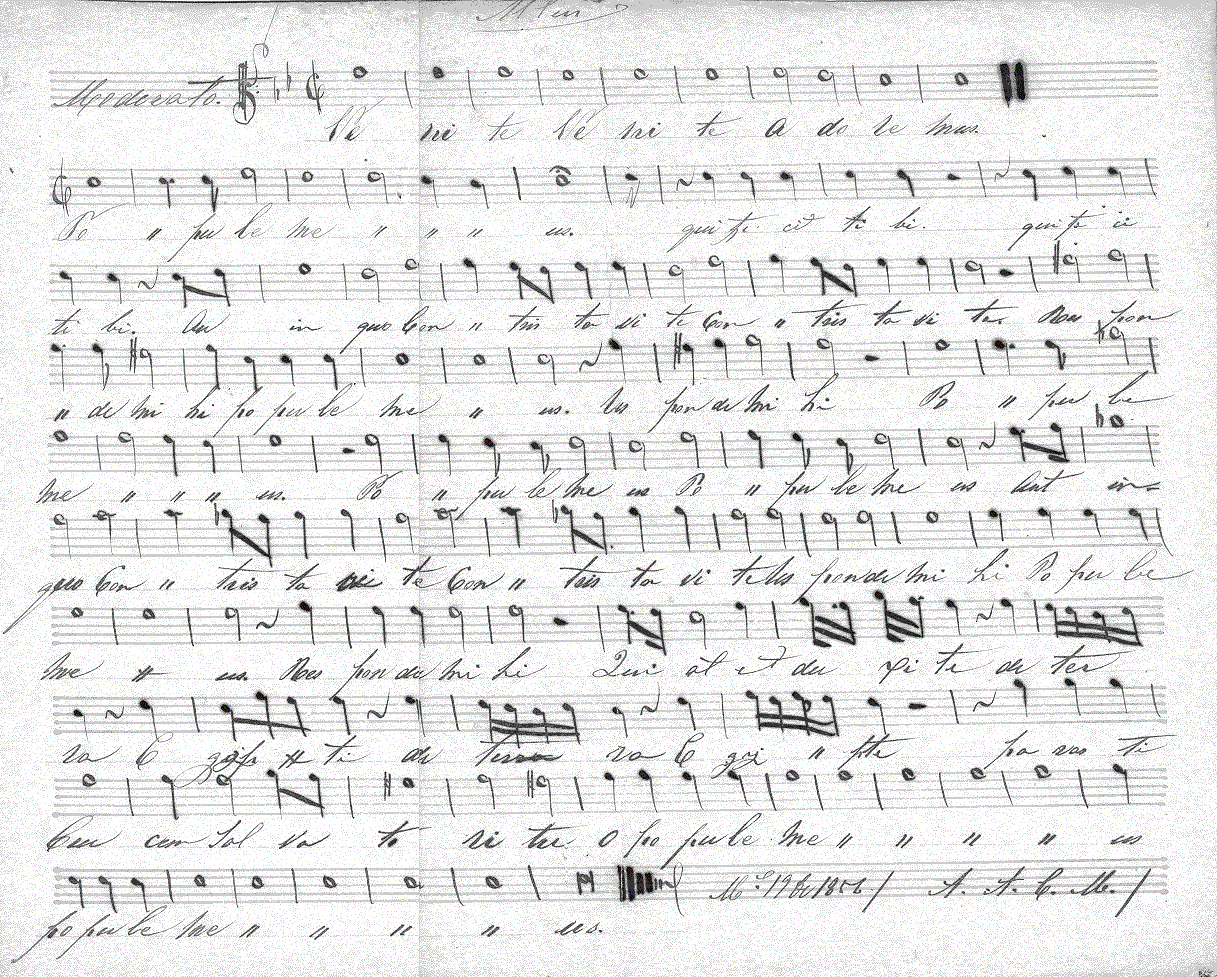 Moderato.
Ve ni te Ve ni te A do re mus.
Po " pu le me " " " us. qui fe cit ti bi. qui fe ci
ti bi. Au in quo Con " tris ta vi te Con " tris ta vi te. Res pon
" de mi hi po pu le me " us. Res pon de mi hi Po " pu le
me " " " us. Po " pu le me us Po " pu le me us Aut in
quo Con " tris ta vi te Con " tris ta vi te Res pon de mi hi Po pu le
me " us. Res pon de mi hi Qui a et du xi te de ter
ra E " ti de ter ra E gi " pte pa ras ti
Cru cem Sal va to ri tu o po pu le me " " " " us
po pu le me " " " " us.
A. A. C. M.